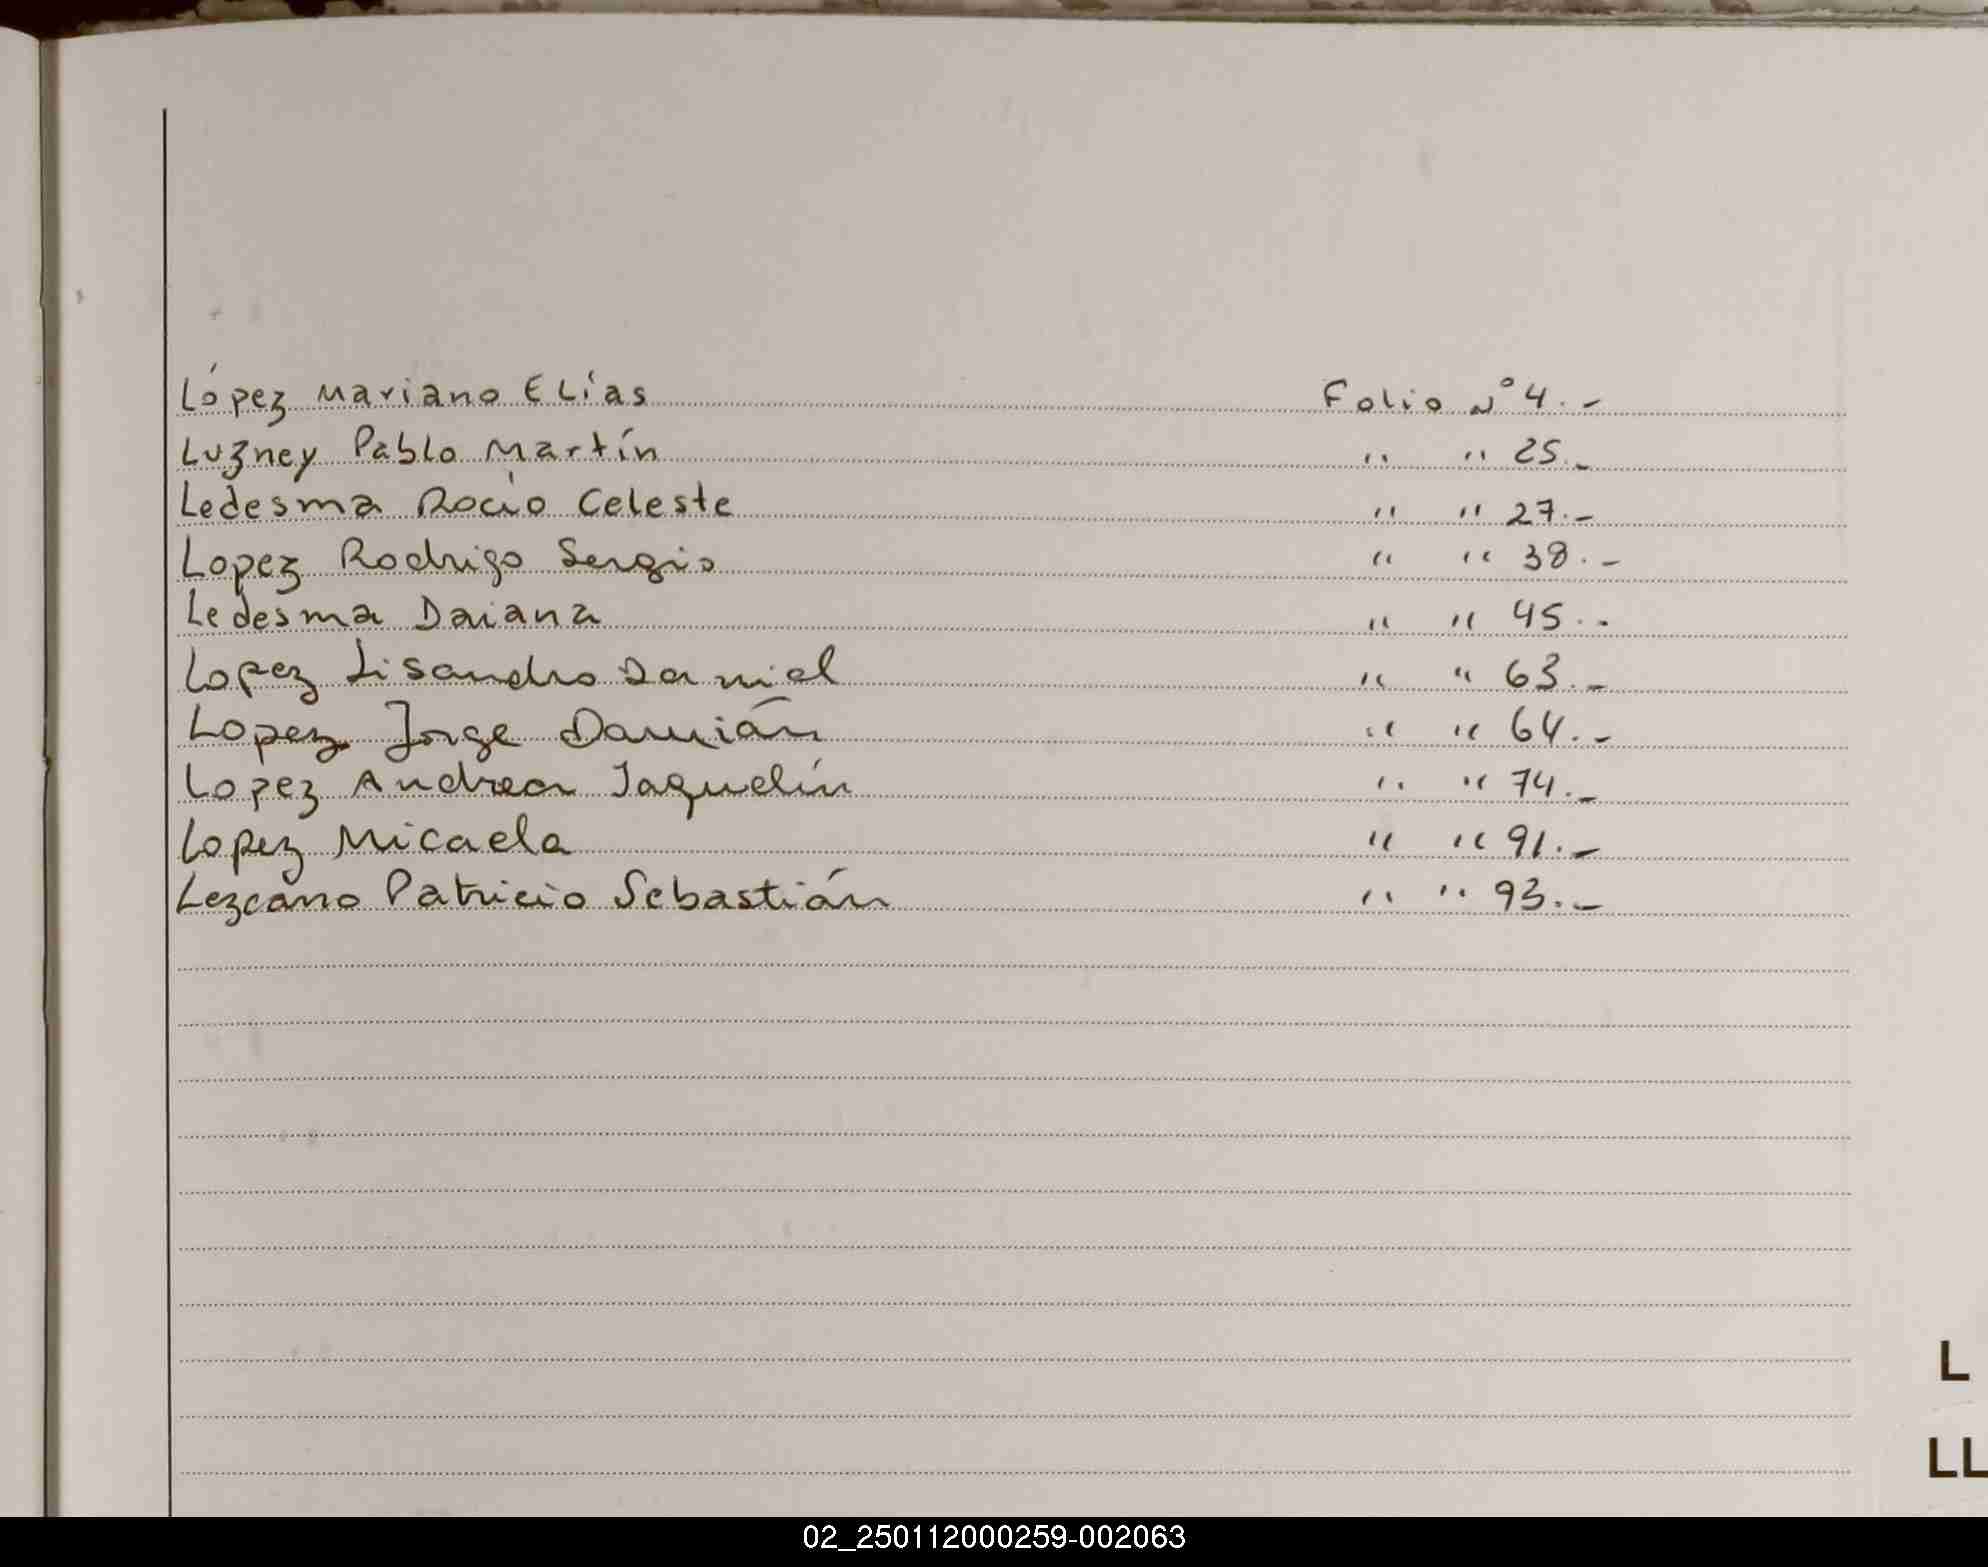 López Mariano Elías Folio N° 4.-
Luzney Pablo Martín " " 25.-
Ledesma Rocío Celeste " " 27.-
Lopez Rodrigo Sergio " " 38.-
Ledesma Daiana " " 45.-
Lopez Lisandro Daniel " " 63.-
Lopez Jorge Damián " " 64.-
Lopez Andrea Jaquelín " " 74.-
Lopez Micaela " " 91.-
Lezcano Patricio Sebastián " " 93.-
L
LL
02_250112000259-002063